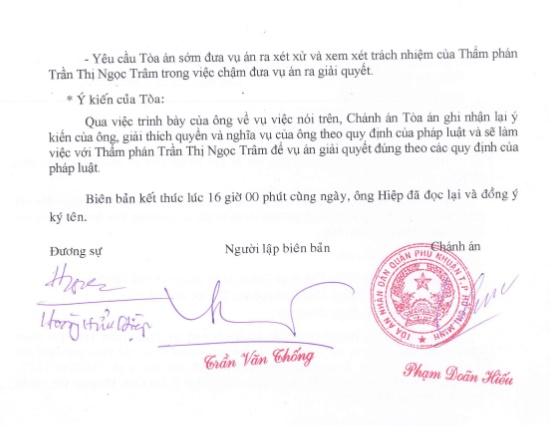 - Yêu cầu Tòa án sớm đưa vụ án ra xét xử và xem xét trách nhiệm của Thẩm phán
Trần Thị Ngọc Trâm trong việc chậm đưa vụ án ra giải quyết.
* Ý kiến của Tòa:
Qua việc trình bày của ông về vụ việc nói trên, Chánh án Tòa án ghi nhận lại ý
kiến của ông, giải thích quyền và nghĩa vụ của ông theo quy định của pháp luật và sẽ làm
việc với Thẩm phán Trần Thị Ngọc Trâm để vụ án giải quyết đúng theo các quy định của
pháp luật.
Biên bản kết thúc lúc 16 giờ 00 phút cùng ngày, ông Hiệp đã đọc lại và đồng ý
ký tên.
Đương sự Người lập biên bản Chánh án
TÒA ÁN NHÂN DÂN QUẬN PHÚ NHUẬN T.P HỒ CHÍ MINH
Hiệp
Trần Văn Thống
Phạm Doãn Hiếu